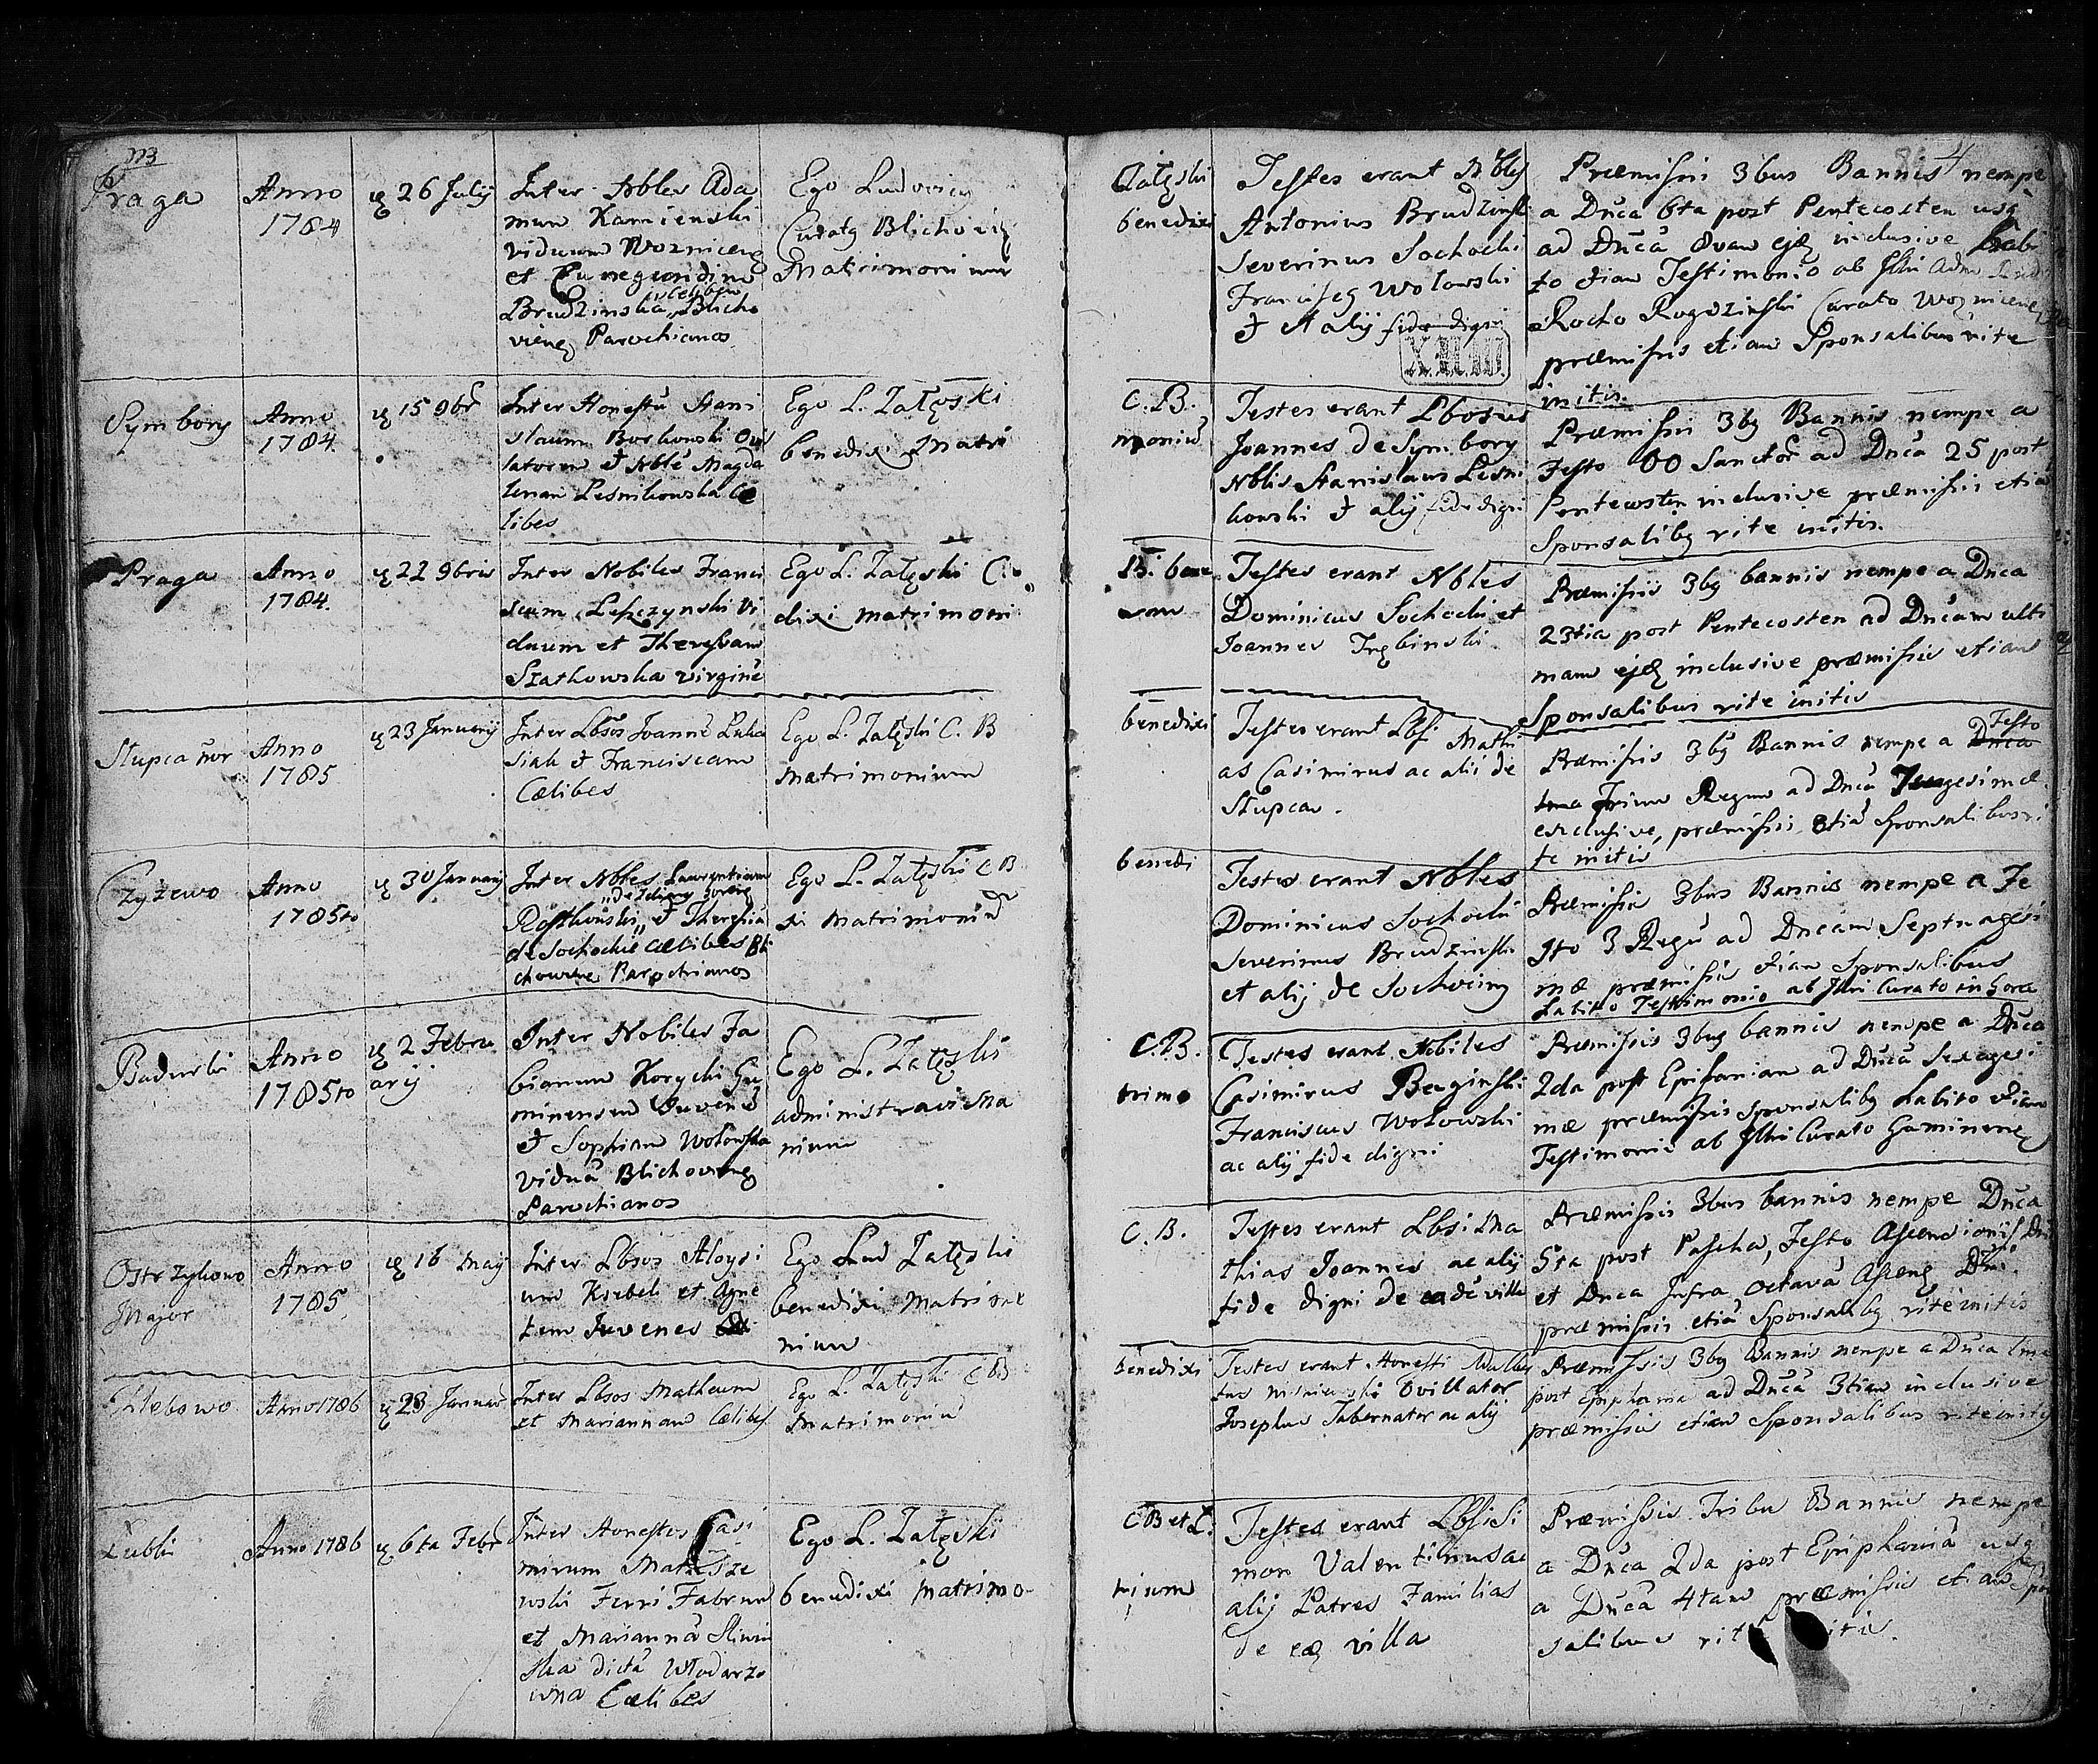 Praga
Anno
1784
26 Julij
Inter Nbles Ada
mum Kamienski
viduum Woznicen
et Cunegundim
Brudzinska Blicho
vien Parochianos
Ego Ludovicy
Curaty Blichovien
Matrimonium
Załęski
benedixi
Testes erant Nbles
Antonius Brudzinski
Severinus Sochocki
Wolowski
et alij fide digni
X.H.W.
Præmissis 3bus Bannis nempe
a Dnca 6ta post Pentecosten usq
ad Dncā 8vam ejq inclusive habi
to etiam Testimonio ab Illri Adm
Rocho Rogozinski Curato Woznicen
præmissis etiam Sponsalibus rite
initis.
Symbory
Anno
1784.
15 9br
Inter Honestū Stani
slaum Borkowski Ovi
latorem et Nblē Magda
lenam Lesnikowska Cæ
libes
Ego L. Załęski
benedixi Matri
C.B.
moniū
Testes erant Lbosius
Joannes de Symbory
Nblis Stanislaus Lesni
kowski et alij fide digni
Præmissis 3bq Bannis nempe a
Festo OO Sanctor ad Dncā 25 post
Pentecosten inclusive præmissis etiā
Sponsalibq rite initis.
Praga
Anno
1784.
22 9bris
Inter Nobiles Franci
scum Leszczynski Vi
duum et Theressam
Szatkowska virginē
Ego L. Załęski C.
dixi matrimoni
B. bene
um
Testes erant Nbles
Dominicus Sochocki et
Joannes Trębinski
Præmissis 3bq bannis nempe a Dnca
23tia post Pentecosten ad Dncam ulti
mam ejq inclusive præmissis etiam
Sponsalibus rite initis
Słupca
Anno
1785
23 Januarij
Inter Lbsos Joannē Luka
siak et Franciscam
Cælibes
Ego L. Załęski C. B
Matrimonium
benedixi
Testes erant Lbsi Mathi
as Casimirus ac alii de
Słupca.
Festo
Præmissis 3bq Bannis nempe a Dnca
Trium Regum ad Dncā
exclusive, præmissis etiā Sponsalibus ri
te initis
Czyżewo
Anno
1785to
30 January
Inter Nbles Laurentium
Rostkowski et Theresiā
de Sochockie cælibes Bli
chovien Parochianos
Ego L. Załęski C B
xi Matrimoniū
benedi
Testes erant Nbles
Dominicus Sochocki
Severinus Brudzinski
et alij de Sochocin
Præmissis 3bus Bannis nempe a Fe
sto 3 Regū ad Dncam Septuagesi
mæ præmissis etiam Sponsalibus
habito Testimonio ab Illri Curato in Gora
Budurki
Anno
1785to
2 Febru
arij
Inter Nobiles Fa
bianum Korycki Ga
minensem Juvenē
et Sophiam Wolowska
viduā Blichovien
Parochianos
Ego L. Załęski
administravi Ma
nium
C.B.
trimo
Testes erant Nobiles
Casimirus Baginski
Franciscus Wolowski
ac alij fide digni
Præmissis 3bus bannis nempe a Dnca
2da post Epifaniam ad Dncā Sexagesi
mæ præmissis Sponsalibq habito etiam
Testimonio ab Illri Curato Gaminen
Ostrzykowo
Major
Anno
1785
16 Maij
Inter Lbsos Aloysi
um Korbel et Agne
tem Juvenes
Ego Lud Załęski
benedixi Matrimo
nium
C. B.
Testes erant Lbsi Ma
thias Joannes ac alij
fide digni de eadē villa
Præmissis 3bus bannis nempe Dnca
5ta post Pascha, Festo Ascensionis Dni
et Dnca Infra octavā Ascens Dni
præmissis etiā Sponsalibq rite initis
Glebowo
Anno 1786
23 Januar
Inter Lbsos Matheum
et Mariannam Cælibes
Ego L. Załęski C B
Matrimoniū
benedixi
Testes erant Honesti Adalber
tus Wisniewski Ovillator
Josephus Tabernator ac alij
Præmissis 3bq Bannis nempe a Dnca 1ma
post Epiphania ad Dncā 3tiam inclusive
præmissis etiam Sponsalibus rite initis
Łubki
Anno 1786
6ta Febr
Inter Honestos Casi
mirum Matusze
wski Ferri Fabrum
et Mariannā Sliwin
ska dictā Włodarzo
wna Cælibes
Ego L. Załęski
benedixi Matrimo-
C B et L.
nium
Testes erant Lbsi Si
mon Valentinus ac
alij Patres Familias
de eaq villa
Præmissis Tribu Bannis nempe
a Dnca 2da post Epiphaniā usq
a Dncā 4tam præmissis etiam Spon
salibus rite initis.